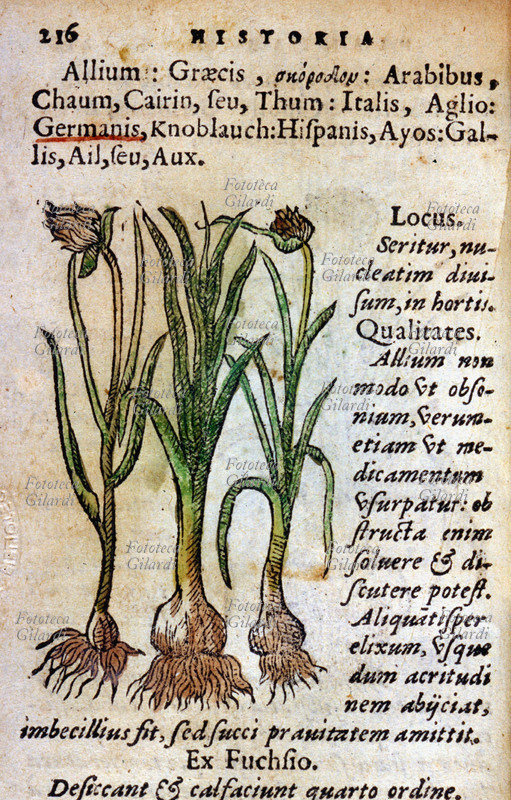 216 HISTORIA
Allium: Græcis, σκόροδον: Arabibus,
Chaum, Cairin, ſeu, Thum: Italis, Aglio:
Germanis, Knoblauch: Hiſpanis, Ayos: Gal-
lis, Ail, ſeu, Aux.
Locus.
Seritur, nu-
cleatim diui-
ſum, in hortis.
Qualitates.
Allium non
modo vt obſo-
nium, verum-
etiam vt me-
dicamentum
vſurpatur: ob
ſtructa enim
ſoluere & di-
ſcutere poteſt.
Aliquātiſper
elixum, vſque
dum acritudi
nem abijciat,
imbecillius fit, ſed ſucci prauitatem amittit.
Ex Fuchſio.
Deſiccant & calfaciunt quarto ordine.
Fototeca
Gilardi